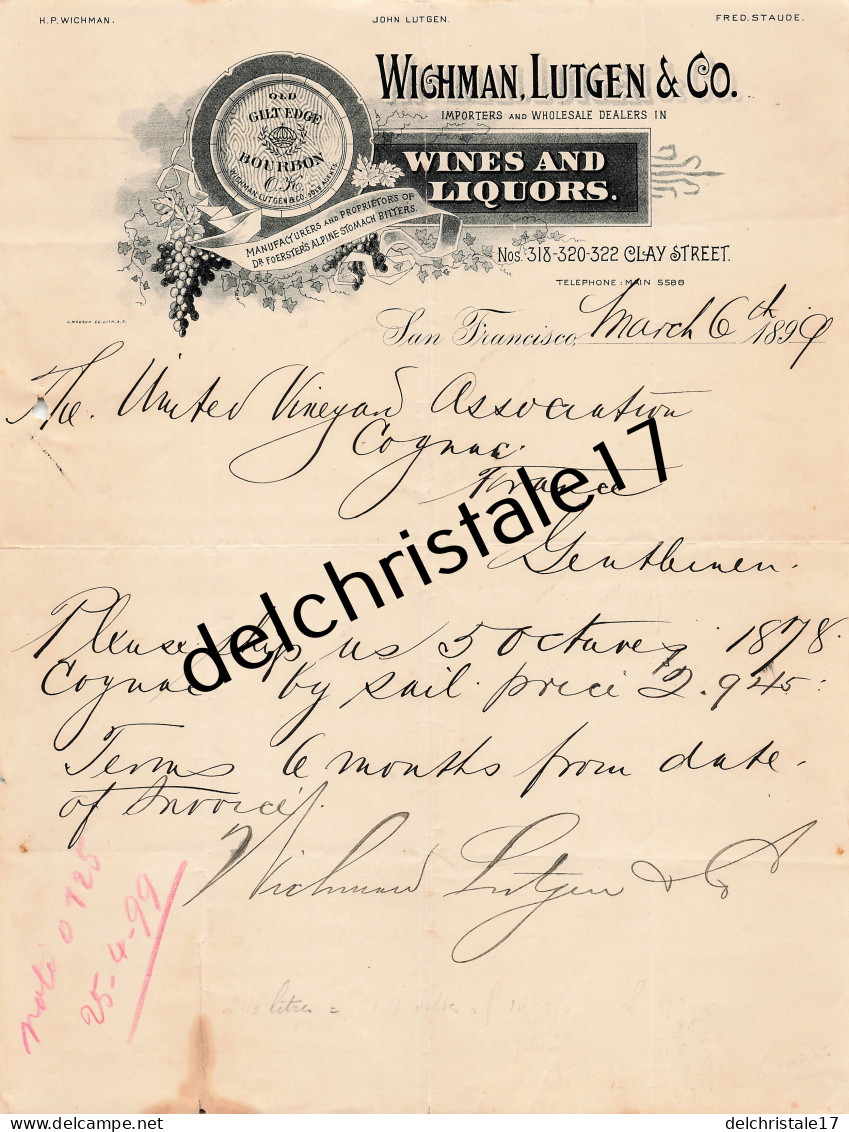 H.P. WICHMAN.
JOHN LUTGEN.
FRED. STAUDE.
WICHMAN, LUTGEN & CO.
IMPORTERS AND WHOLESALE DEALERS IN
WINES AND
LIQUORS.
OLD
GILT EDGE
BOURBON
O.K.
WICHMAN, LUTGEN & CO. SOLE AGENTS
MANUFACTURERS AND PROPRIETORS OF
DR FOERSTER'S ALPINE STOMACH BITTERS.
Nos. 318-320-322 CLAY STREET.
TELEPHONE: MAIN 5588
San Francisco, March 6th 1899
The United Vineyard Association
Cognac
France
Gentlemen.
Please ship us 5 Octaves 1878
Cognac by sail. price 2.945:
Terms 6 months from date
of Invoice.
Wichman Lutgen & Co
noté 0 125
25-4-99
litres =
delchristale17
delcampe.net
delchristale17